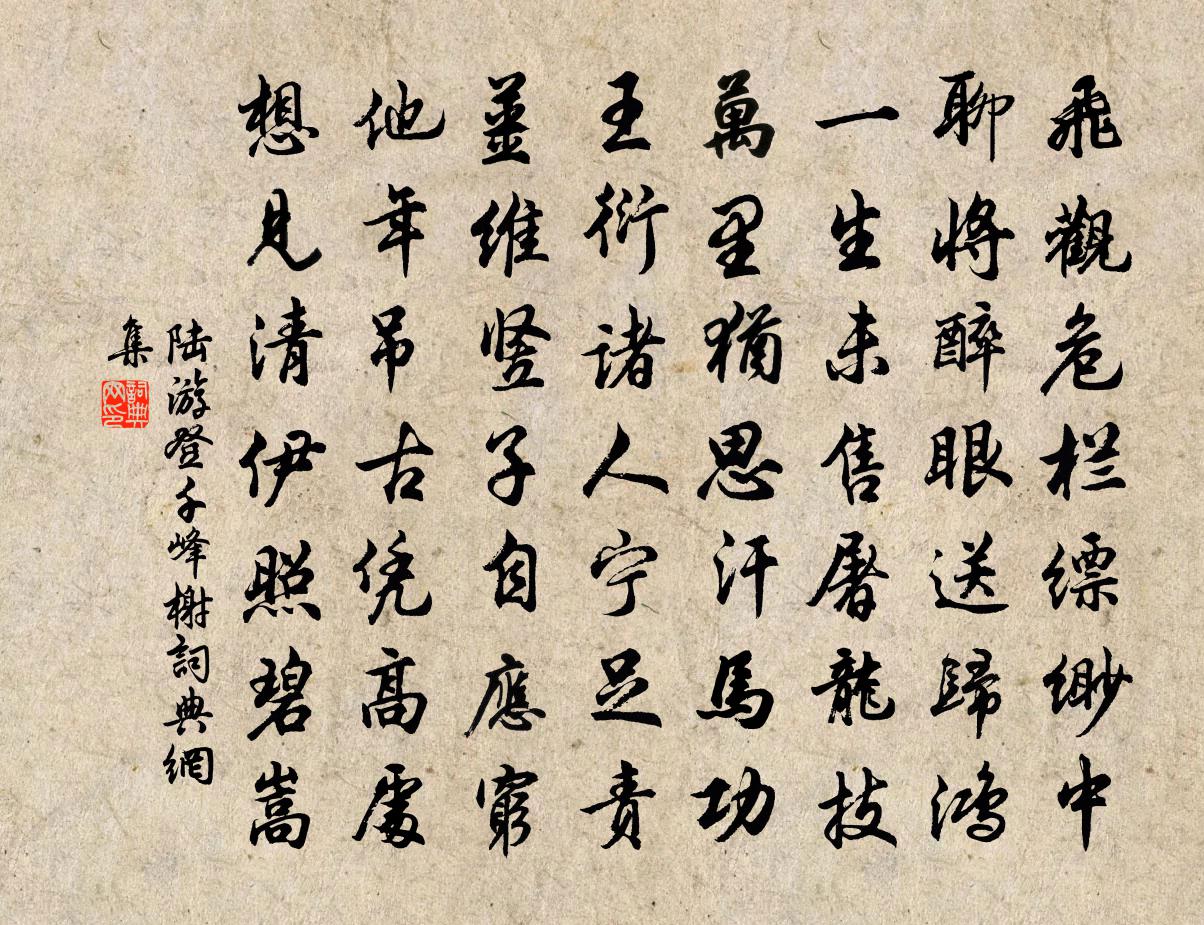 飛觀危栏縹緲中
聊將醉眼送歸鴻
一生未售屠龍技
萬里猶思汗馬功
王衍諸人宁足責
姜維竖子自應窮
他年吊古凭高處
想見清伊照碧嵩
陆游登千峰榭詞典網
集
詞典
网印